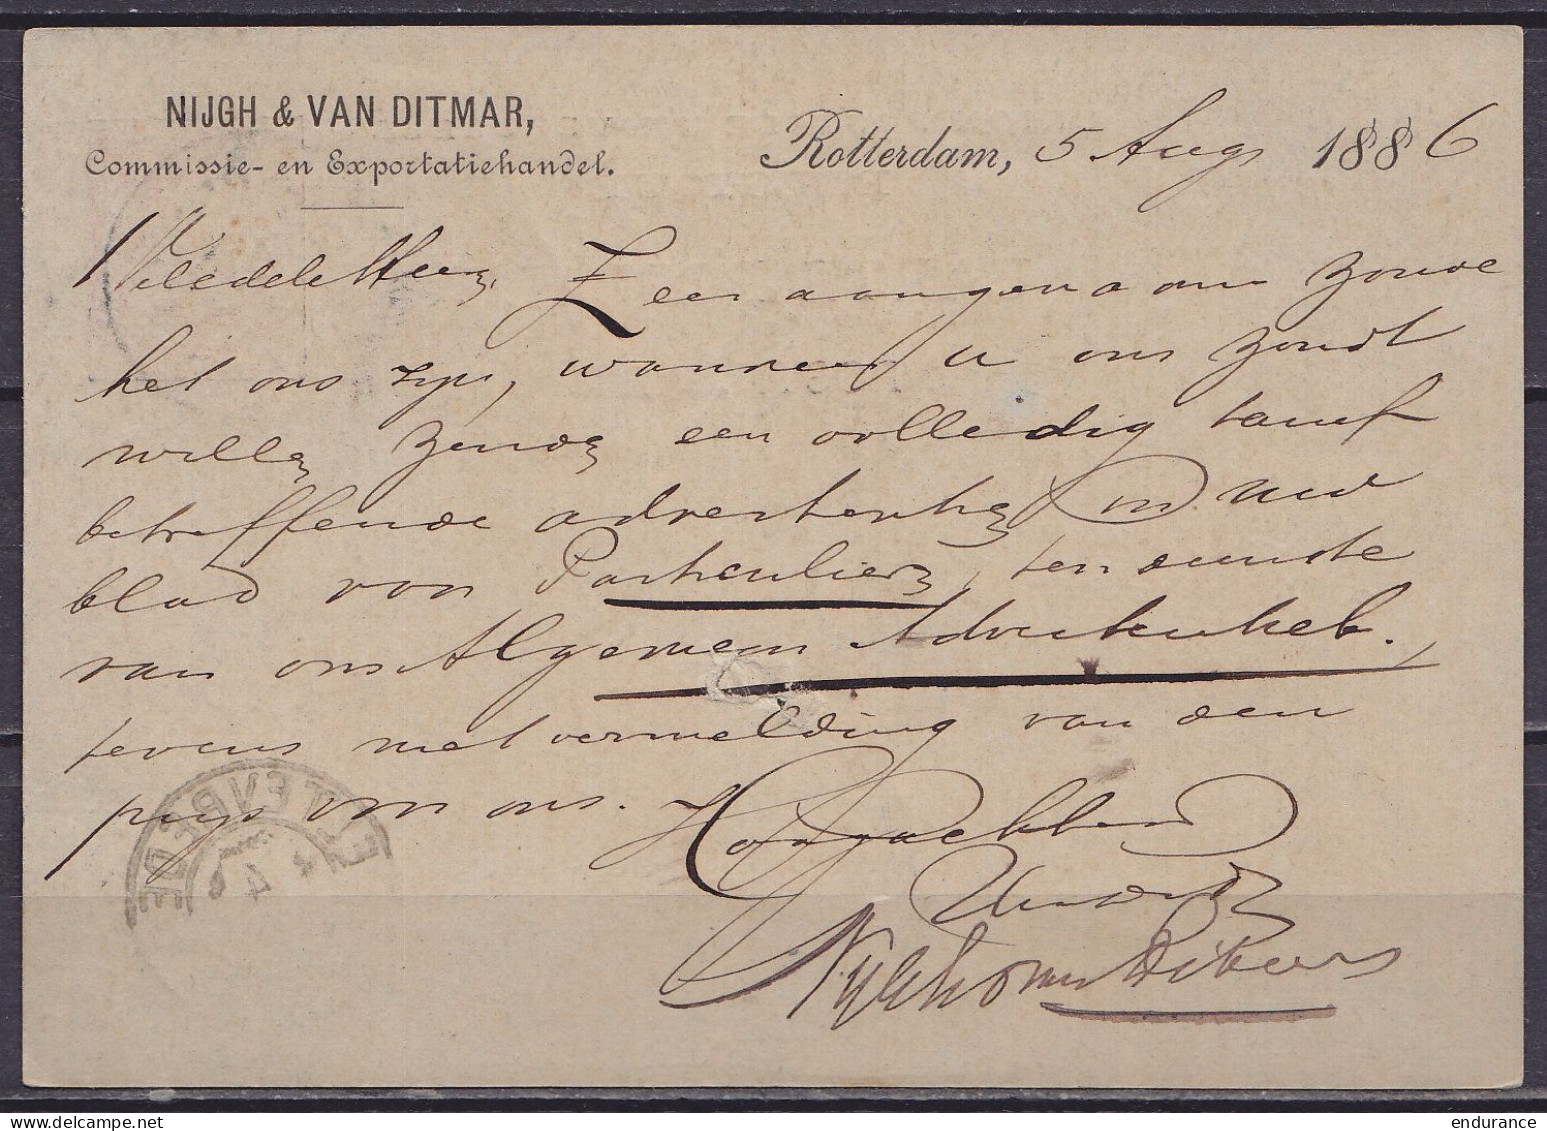 NIJGH & VAN DITMAR,
Commissie- en Exportatiehandel.
Rotterdam, 5 Aug 1886
WelEdele Heer, Zeer aangenaam zoude
het ons zijn, wanneer u ons zoudt
willen zenden een volledig tarief
betreffende advertentien in uw
blad van Particulieren, ten dienste
van ons Algemeen Advertentieb.,
tevens met vermelding van den
prijs voor ons. Hoogachtend
Nijgh & van Ditmar
EECLOO
endurance